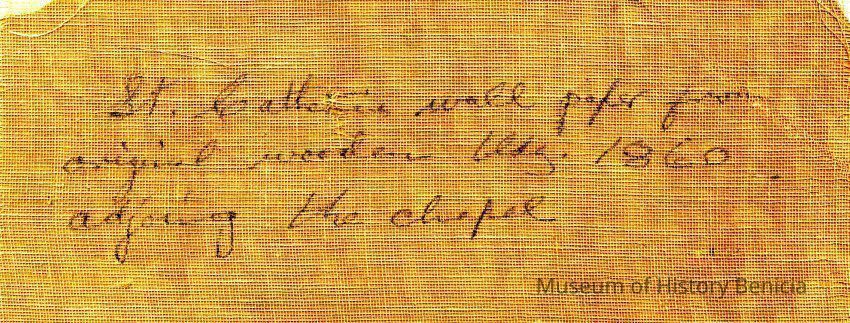 St. Catherine wall paper from
original wooden bldg. 1860
adjoing the chapel
Museum of History Benicia